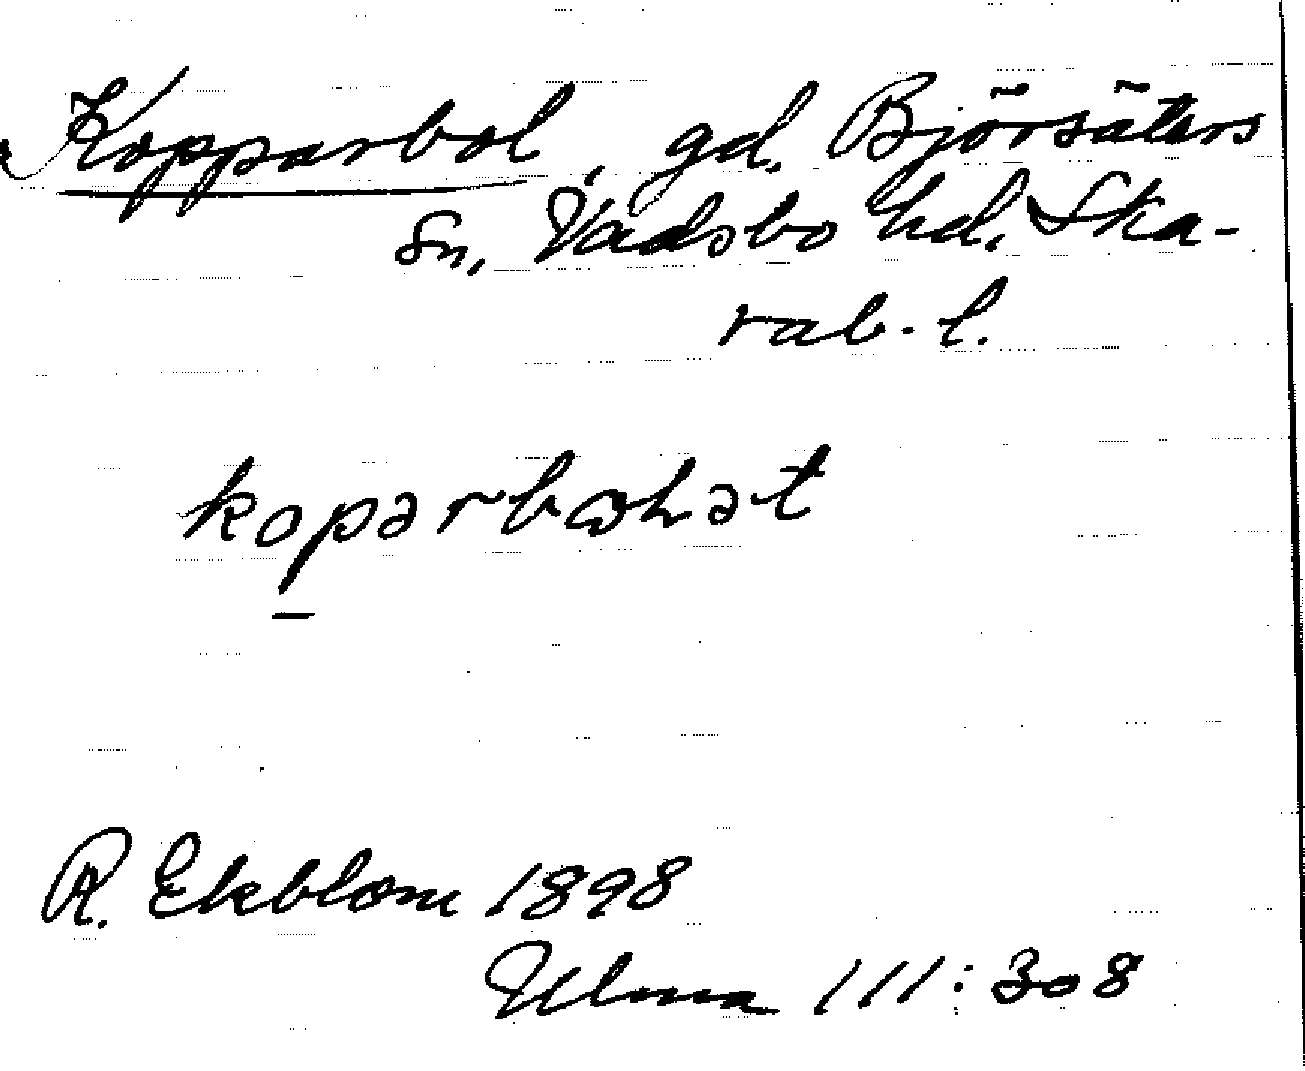 Kopparbol, gd. Björsäters
Sn, Vadsbo hd. Ska-
rab. l.
kopərbωlət
R. Ekblom 1898
Ulma 111:308